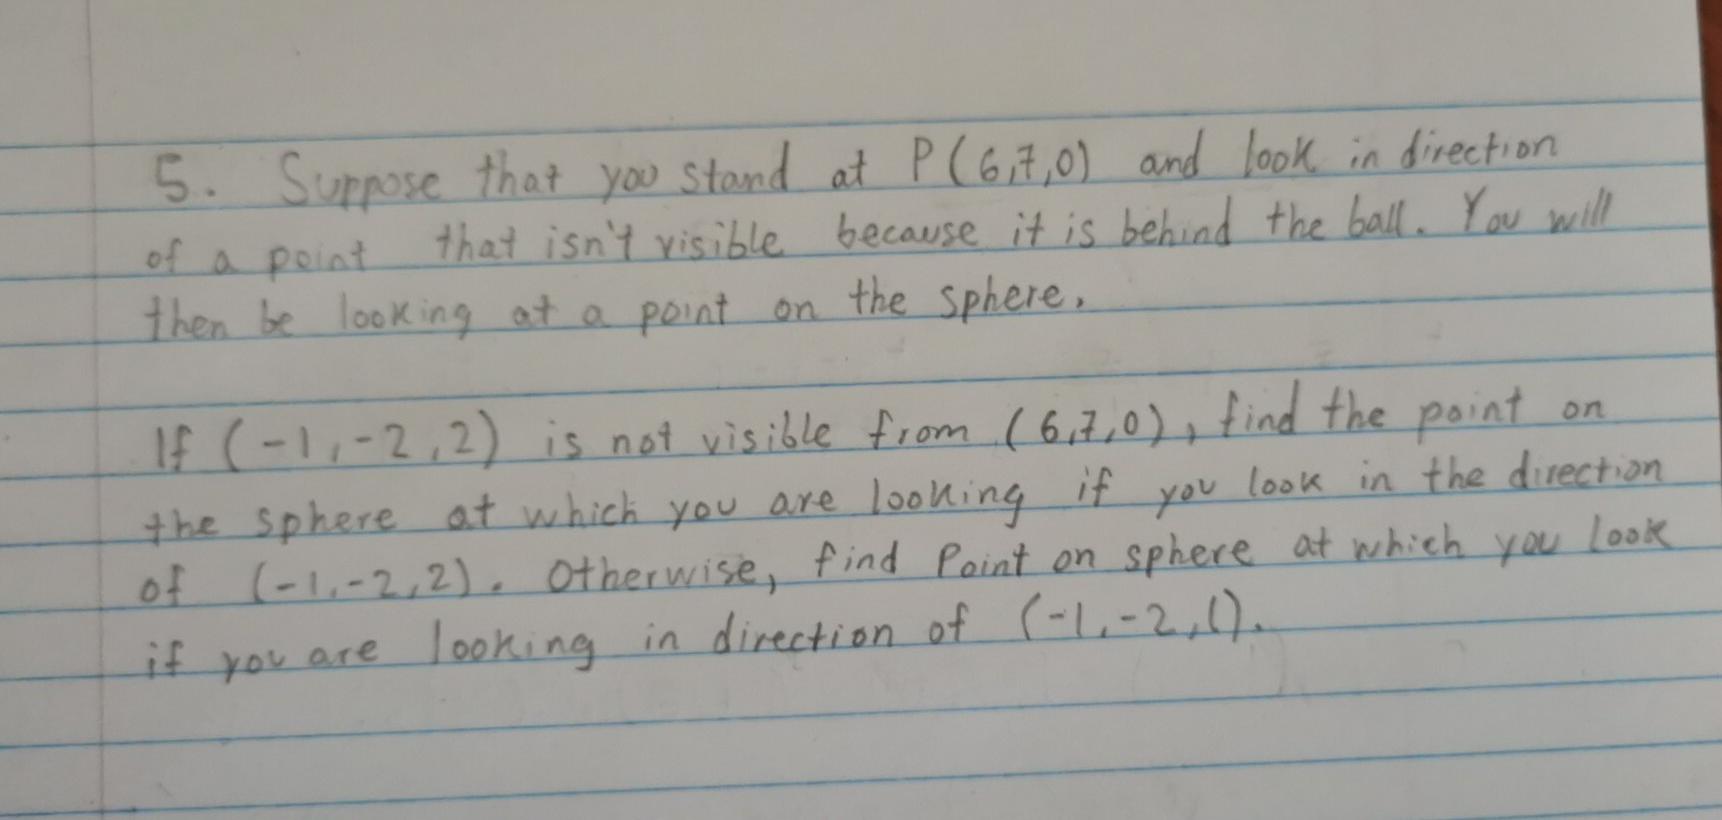 5. Suppose that you stand at P(6,7,0) and look in direction
of a point that isn't visible because it is behind the ball. You will
then be looking at a point on the sphere.
If (-1,-2,2) is not visible from (6,7,0), find the point on
the sphere at which you are looking if you look in the direction
of (-1,-2,2). Otherwise, find Point on sphere at which you look
if you are looking in direction of (-1,-2,1).